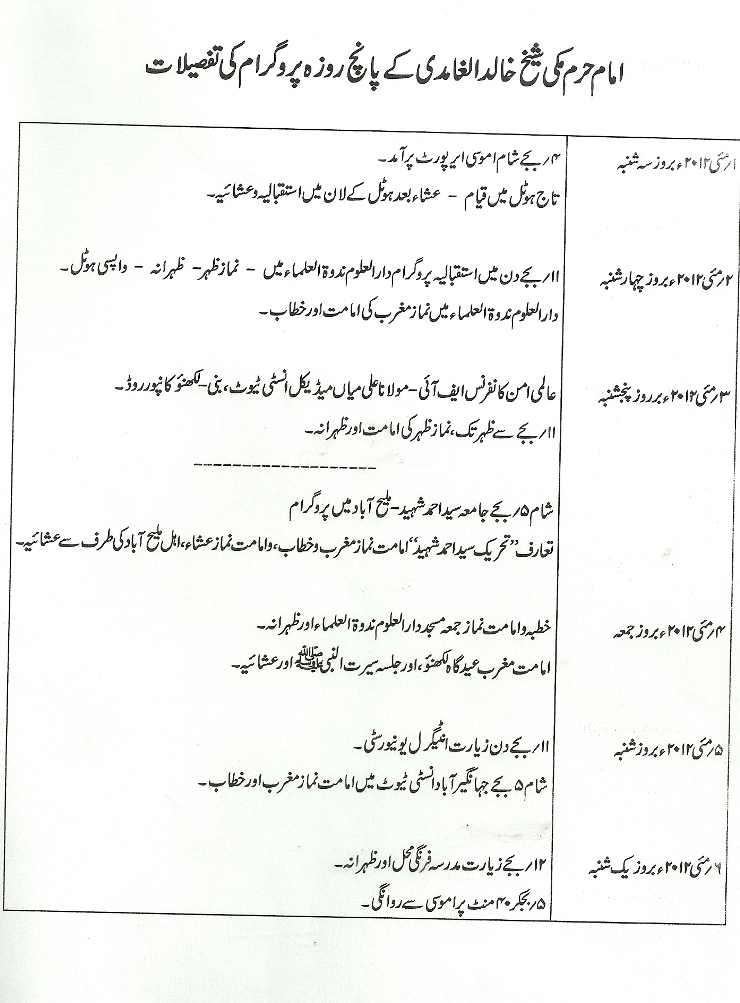 امام حرم مکی شیخ خالد الغامدی کے پانچ روزہ پروگرام کی تفصیلات
۱/مئی ۲۰۱۲ء بروز سہ شنبہ
۴/بجے شام اموسی ایرپورٹ پر آمد۔
تاج ہوٹل میں قیام - عشاء بعد ہوٹل کے لان میں استقبالیہ و عشائیہ۔
۲/مئی ۲۰۱۲ء بروز چہار شنبہ
۱۱/بجے دن میں استقبالیہ پروگرام دار العلوم ندوۃ العلماء میں - نماز ظہر - ظہرانہ - واپسی ہوٹل۔
دار العلوم ندوۃ العلماء میں نماز مغرب کی امامت اور خطاب۔
۳/مئی ۲۰۱۲ء برروز پنجشنبہ
عالمی امن کانفرنس ایف آئی - مولانا علی میاں میڈیکل انسٹی ٹیوٹ، بنی - لکھنؤ کانپور روڈ۔
۱۱/بجے سے ظہر تک، نماز ظہر کی امامت اور ظہرانہ۔
-------------------
شام ۵/بجے جامعہ سید احمد شہید - ملیح آباد میں پروگرام
تعارف "تحریک سید احمد شہید" امامت نماز مغرب و خطاب، و امامت نماز عشاء، اہل ملیح آباد کی طرف سے عشائیہ۔
۴/مئی ۲۰۱۲ء بروز جمعہ
خطبہ و امامت نماز جمعہ مسجد دار العلوم ندوۃ العلماء اور ظہرانہ۔
امامت مغرب عیدگاہ لکھنؤ، اور جلسہ سیرت النبی ﷺ اور عشائیہ۔
۵/مئی ۲۰۱۲ء بروز شنبہ
۱۱/بجے دن زیارت انٹیگرل یونیورسٹی۔
شام ۵ بجے جہانگیر آباد انسٹی ٹیوٹ میں امامت نماز مغرب اور خطاب۔
۶/مئی ۲۰۱۲ء بروز یک شنبہ
۱۲/بجے زیارت مدرسہ فرنگی محل اور ظہرانہ۔
۵/بجکر ۴۰ منٹ پر اموسی سے روانگی۔